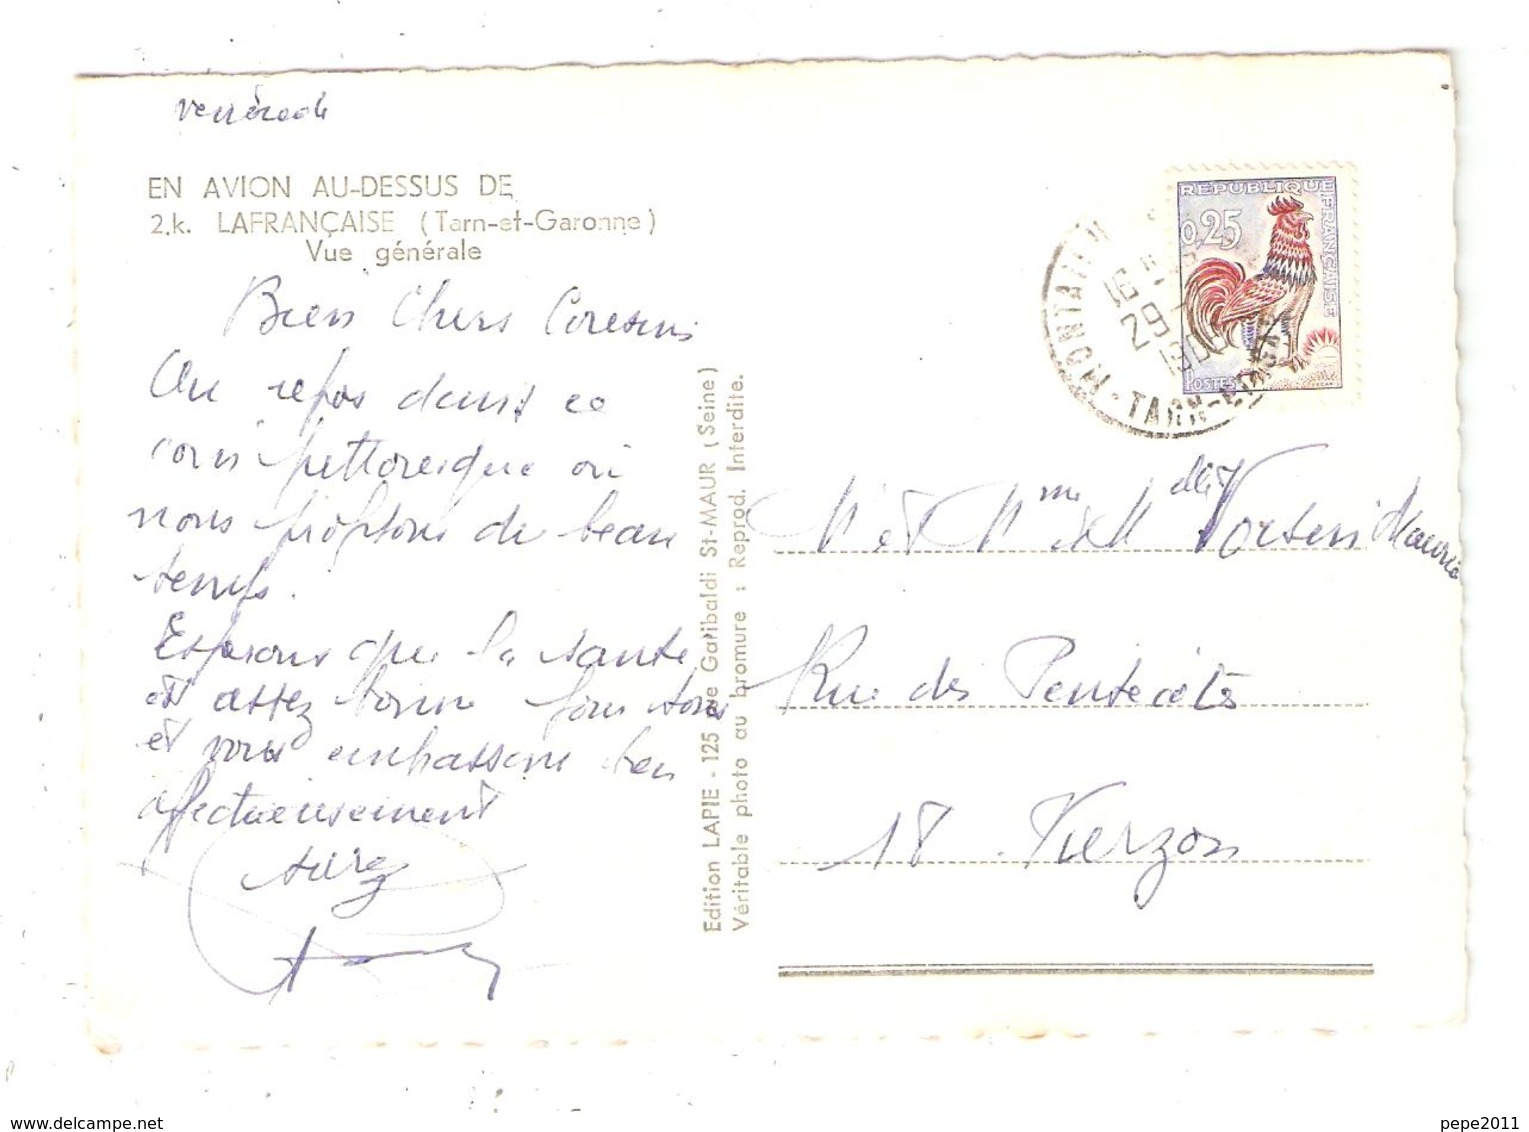 EN AVION AU-DESSUS DE
2.k. LAFRANÇAISE (Tarn-et-Garonne)
Vue générale
Bien Chers
Au repos dans ce
coin pittoresque où
nous profitons du beau
temps.
Espérons que la santé
est assez bonne pour tous
et vous embrassons bien
affectueusement
Edition LAPIE - 125 rue Garibaldi St-MAUR (Seine)
Véritable photo au bromure : Reprod. Interdite.
REPUBLIQUE FRANÇAISE
0,25
POSTES
16 H
29
TARN-ET-
M et Mme et Mlle
Rue des Pentecôtes
18 . Vierzon
www.delcampe.net
pepe2011